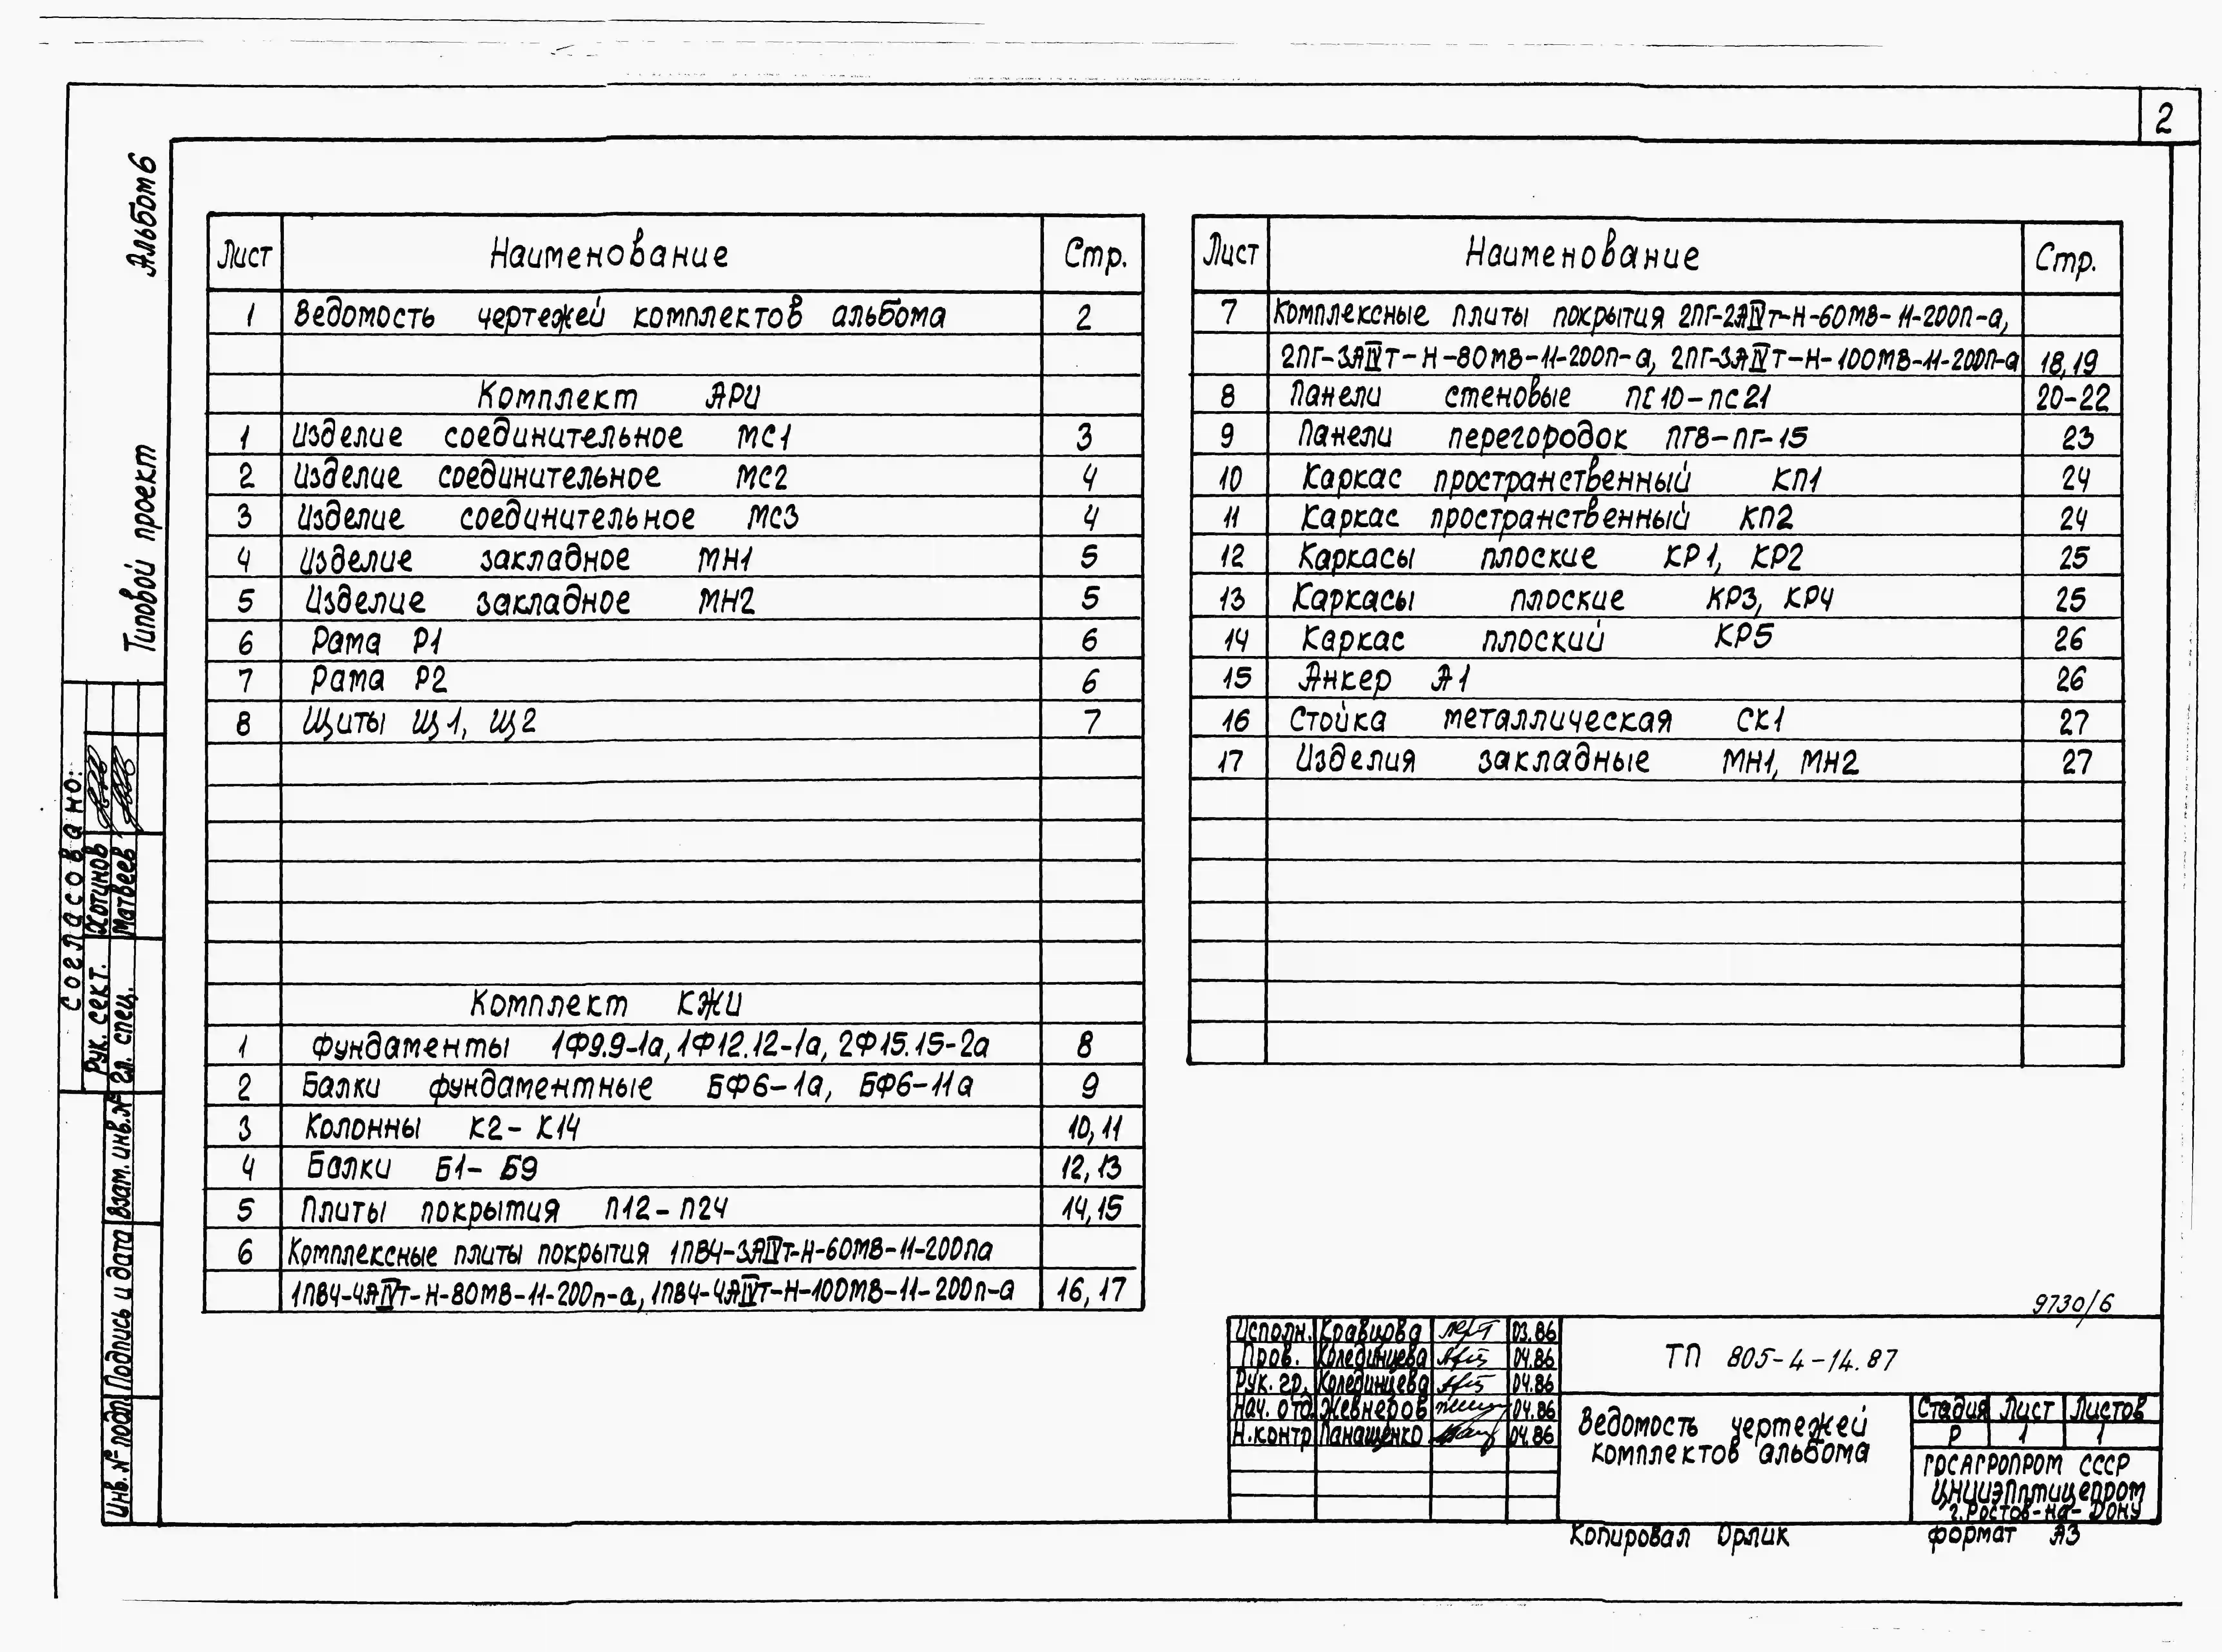 2
Альбом 6
Типовой проект
Лист Наименование Стр.
1 Ведомость чертежей комплектов альбома 2
Комплект АРИ
1 Изделие соединительное МС1 3
2 Изделие соединительное МС2 4
3 Изделие соединительное МС3 4
4 Изделие закладное МН1 5
5 Изделие закладное МН2 5
6 Рама Р1 6
7 Рама Р2 6
8 Щиты Щ1, Щ2 7
Комплект КЖИ
1 Фундаменты 1Ф9.9-1а, 1Ф12.12-1а, 2Ф15.15-2а 8
2 Балки фундаментные БФ6-1а, БФ6-11а 9
3 Колонны К2-К14 10,11
4 Балки Б1-Б9 12,13
5 Плиты покрытия П12-П24 14,15
6 Комплексные плиты покрытия 1ПВ4-3АIVт-Н-60МВ-11-200па
1ПВ4-4АIVт-Н-80МВ-11-200п-а, 1ПВ4-4АIVт-Н-100МВ-11-200п-а 16,17
Лист Наименование Стр.
7 Комплексные плиты покрытия 2ПГ-2АIVт-Н-60МВ-11-200П-а,
2ПГ-3АIVт-Н-80МВ-11-200П-а, 2ПГ-3АIVт-Н-100МВ-11-200П-а 18,19
8 Панели стеновые ПС10-ПС21 20-22
9 Панели перегородок ПГ8-ПГ-15 23
10 Каркас пространственный КП1 24
11 Каркас пространственный КП2 24
12 Каркасы плоские КР1, КР2 25
13 Каркасы плоские КР3, КР4 25
14 Каркас плоский КР5 26
15 Анкер А1 26
16 Стойка металлическая СК1 27
17 Изделия закладные МН1, МН2 27
Согласовано:
Рук. сект. Хотинов
Гл. спец. Матвеев
Взам. инв. №
Подпись и дата
Инв. № подл.
9730/6
Исполн. Кравцова 03.86
Пров. Колединцева 04.86
Рук. гр. Колединцева 04.86
Нач. отд. Жевнеров 04.86
Н.контр Панащенко 04.86
ТП 805-4-14.87
Ведомость чертежей
комплектов альбома
Стадия Лист Листов
Р 1 1
ГОСАГРОПРОМ СССР
ЦНИИЭПптицепром
г. Ростов-на-Дону
Копировал Орлик Формат А3